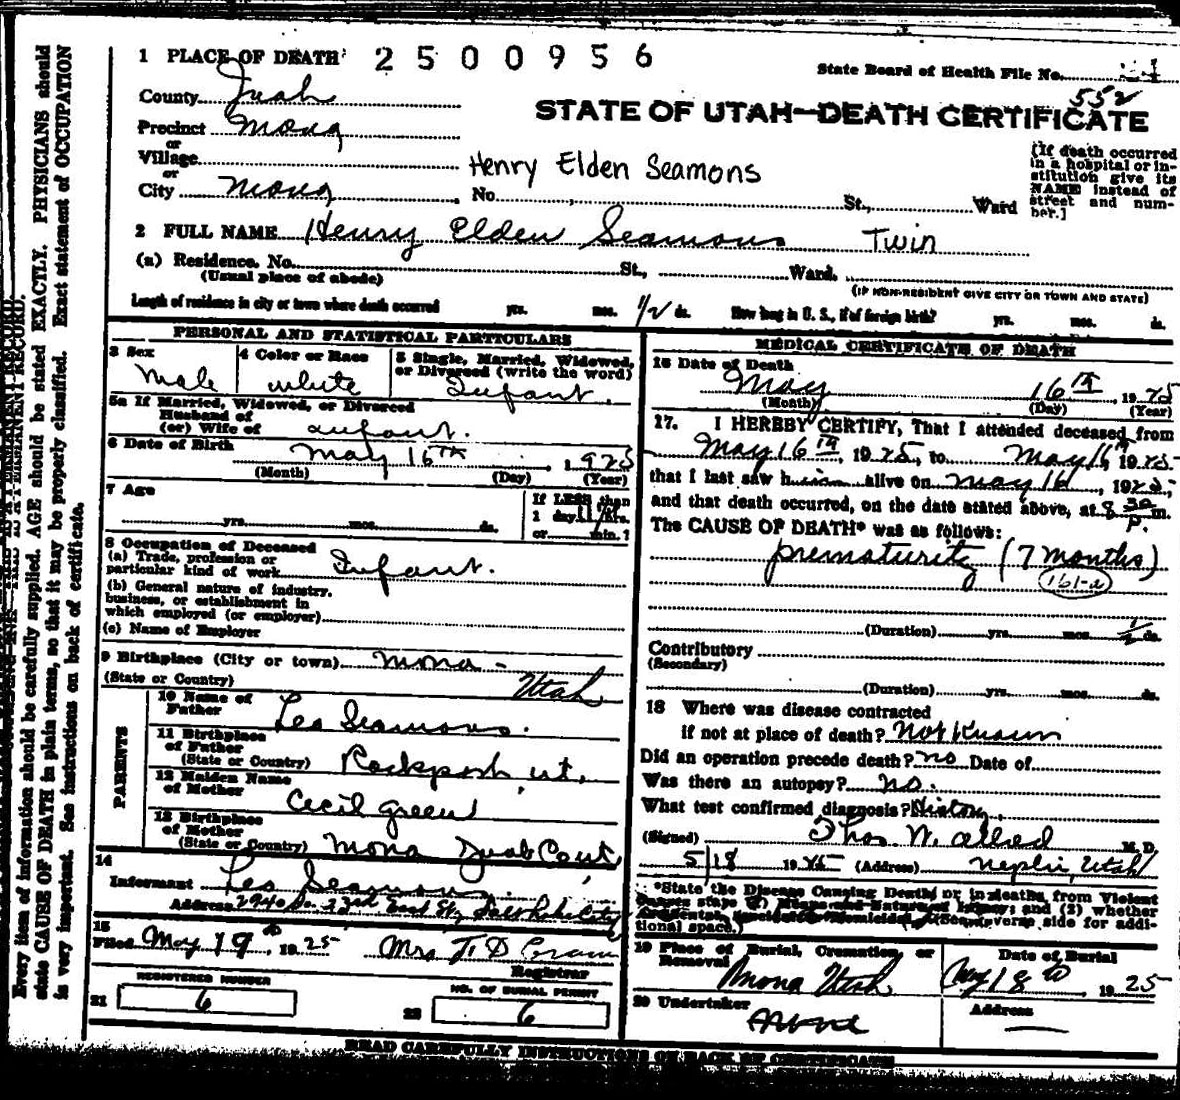 1 PLACE OF DEATH 2500956
State Board of Health File No.
552
County Juab
STATE OF UTAH—DEATH CERTIFICATE
Precinct Mona
or
Village
or
City Mona, No. St., Ward
Henry Elden Seamons
(If death occurred
in a hospital or in-
stitution give its
NAME instead of
street and num-
ber.)
2 FULL NAME Henry Elden Seamons Twin
(a) Residence. No. St., Ward.
(Usual place of abode)
(IF NON-RESIDENT GIVE CITY OR TOWN AND STATE)
Length of residence in city or town where death occurred yrs. mos. 1/2 ds. How long in U. S., if of foreign birth? yrs. mos. ds.
PERSONAL AND STATISTICAL PARTICULARS
3 Sex Male
4 Color or Race white
5 Single, Married, Widowed,
or Divorced (write the word)
Infant.
5a If Married, Widowed, or Divorced
Husband of
(or) Wife of Infant.
6 Date of Birth May 16th, 1925
(Month) (Day) (Year)
7 Age
yrs. mos. ds.
If LESS than
1 day hrs.
or min.?
8 Occupation of Deceased
(a) Trade, profession or
particular kind of work Infant.
(b) General nature of industry,
business, or establishment in
which employed (or employer)
(c) Name of Employer
9 Birthplace (City or town) Mona -
(State or Country) Utah
PARENTS
10 Name of
Father Les Seamons.
11 Birthplace
of Father
(State or Country) Rockport, ut.
12 Maiden Name
of Mother Cecil Green
13 Birthplace
of Mother
(State or Country) Mona Juab Co ut
14
Informant Les Seamons.
Address 2940 So. 23rd East St, Salt Lake City
15
Filed May 19th, 1925 Mrs
Registrar
REGISTERED NUMBER
21 6
NO. OF BURIAL PERMIT
22 6
MEDICAL CERTIFICATE OF DEATH
16 Date of Death
May 16th, 1925
(Month) (Day) (Year)
17. I HEREBY CERTIFY, That I attended deceased from
May 16th, 1925, to May 16th, 1925
that I last saw him alive on May 16, 1925,
and that death occurred, on the date stated above, at 8 30 P. m.
The CAUSE OF DEATH* was as follows:
prematurity (7 months)
161-a
(Duration) yrs. mos. 1/2 ds.
Contributory
(Secondary)
(Duration) yrs. mos. ds.
18 Where was disease contracted
if not at place of death? Not Known
Did an operation precede death? no Date of
Was there an autopsy? no.
What test confirmed diagnosis? History.
(Signed) Thos. W. Allred M. D.
5/18 1925 (Address) Nephi, Utah
*State the Disease Causing Death, or in deaths from Violent
Causes state (1) Means and Nature of Injury; and (2) whether
Accidental, Suicidal or Homicidal. (See reverse side for addi-
tional space.)
19 Place of Burial, Cremation, or
Removal Mona Utah
Date of Burial
May 18th 1925
20 Undertaker
None
Address
—
READ CAREFULLY INSTRUCTIONS ON BACK OF CERTIFICATE
Every item of information should be carefully supplied. AGE should be stated EXACTLY. PHYSICIANS should
state CAUSE OF DEATH in plain terms, so that it may be properly classified. Exact statement of OCCUPATION
is very important. See instructions on back of certificate.